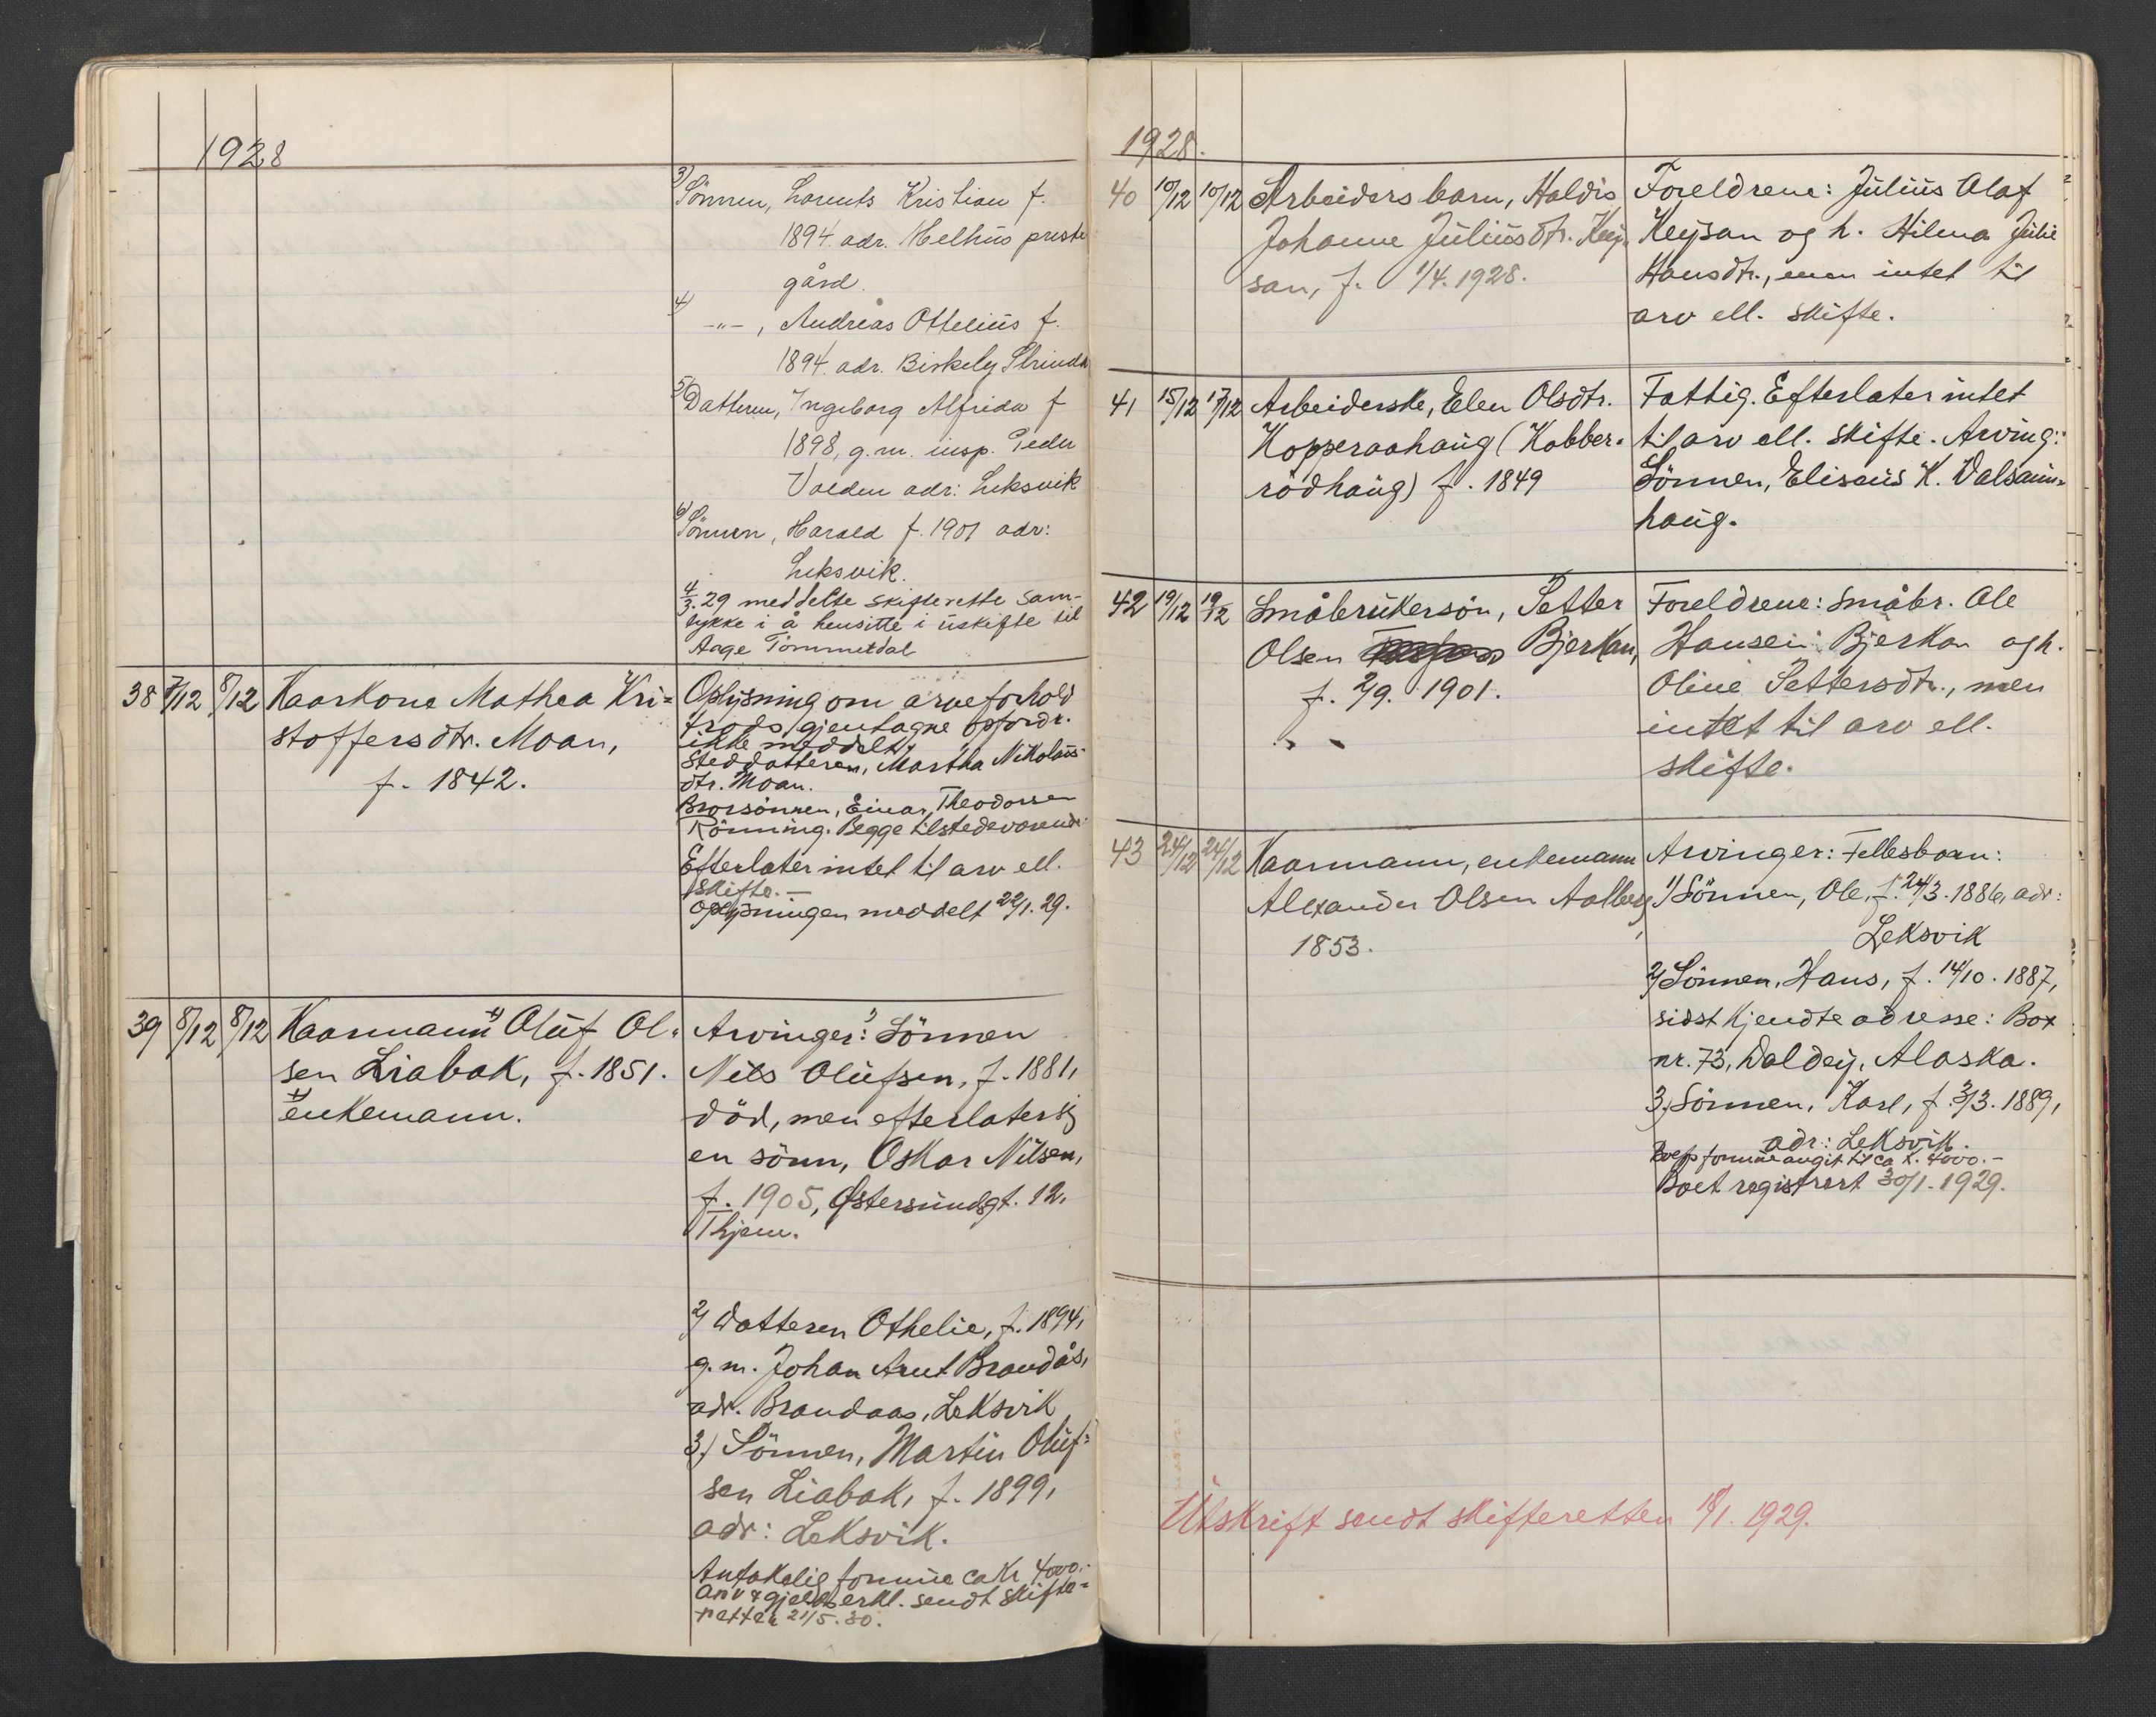 1928
3) Sönnen, Lorents Kristian f.
1894. adr. Melhus preste
gård.
4) -"-, Andreas Ottelius f.
1894. adr. Birkely Strinda
5) Datteren, Ingeborg Alfrida f
1898, g.m. insp. Peder
Valden adr: Leksvik
6) Sönnen, Harald f. 1901 adr:
Leksvik.
4/3.29 meddelte skifterette sam-
tykke i å hensitte i uskifte til
Aage Tömmerdal
38 7/12 8/12 Kaarkone Mathea Kri=
stoffersdtr. Moan,
f. 1842.
Oplysning om arveforhold
trods gjentagne opfordr.
ikke meddelt.
Steddatteren, Martha Nikolaus-
dtr. Moan.
Brorsönnen, Einar Theodorsen
Rönning. Begge tilstedeværende.
Efterlater intet til arv ell.
skifte.—
Oplysningen meddelt 22/1.29.
39 8/12 8/12 Kaarmann +) Oluf Ol=
sen Liabak, f. 1851.
+) enkemann.
Arvinger: 1) Sönnen
Nils Olufsen, f. 1881,
död, men efterlater sig
en sönn, Oskar Nilsen,
f. 1905, Østersundsgt. 12.
Thjem.
2) Datteren Othelie, f. 1894,
g.m. Johan Arnt Brandås,
adr. Brandaas, Leksvik
3) Sönnen, Martin Oluf=
sen Liabak, f. 1899,
adr: Leksvik.
Antakelig formue ca Kr 4000.-
Arv & gjeldserkl. sendt skifte=
retten 21/5.30.
1928.
40 10/12 10/12 Arbeiders barn, Haldis
Johanne Juliusdtr. Key=
san, f. 1/4.1928.
Foreldrene: Julius Olaf
Keysan og h. Hilma Julie
Hansdtr., men intet til
arv ell. skifte.
41 15/12 17/12 Arbeiderske, Elen Olsdtr.
Kopperaahaug (Kobber=
rödhaug) f. 1849
Fattig. Efterlater intet
til arv ell. skifte. Arving:
Sönnen, Eliseus K. Dalsaun=
haug.
42 19/12 19/12 Småbrukersön, Petter
Olsen Bjerkan,
f. 2/9. 1901.
Foreldrene: Småbr. Ole
Hansen Bjerkan og h.
Oline Pettersdtr., men
intet til arv ell.
skifte.
43 24/12 24/12 Kaarmann, enkemann
Alexander Olsen Aalberg,
1853.
Arvinger: Fellesbarn:
1) Sönnen, Ole, f. 24/3.1886, adr:
Leksvik
2) Sönnen, Hans, f. 14/10. 1887,
sidst kjendte adresse: Box
nr. 73, Valdey, Alaska.
3) Sönnen, Karl, f. 3/3. 1889,
adr: Leksvik.
Boets formue angit til ca k. 4000.-
Boet registrert 30/1.1929.
Utskrift sendt skifteretten 18/1. 1929.